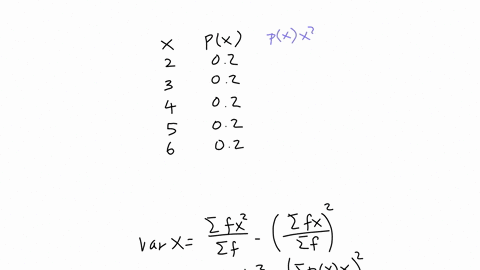 x P(x) P(x)x²
2 0.2
3 0.2
4 0.2
5 0.2
6 0.2
var X = Σfx²/Σf - (Σfx/Σf)²